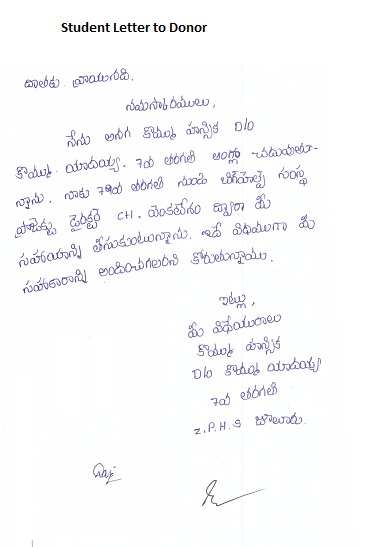 Student Letter to Donor
దాతకు వ్రాయునది,
నమస్కారములు,
నేను అనగా కొమ్ము హన్సిక D/o
కొమ్ము యాదయ్య. 7వ తరగతి చదువుతు-
న్నాను. నాకు 7వ తరగతి నుండి సంస్థ
ప్రాజెక్టు డైరెక్టర్ CH. వెంకటేశం ద్వారా మీ
సహాయాన్ని తీసుకుంటున్నాను. ఇదే విధముగా మీ
సహకారాన్ని అందించగలరని కోరుతున్నాము.
ఇట్లు,
మీ విధేయురాలు
కొమ్ము హన్సిక
D/o కొమ్ము యాదయ్య
7వ తరగతి
Z.P.H.S జూలూరు.